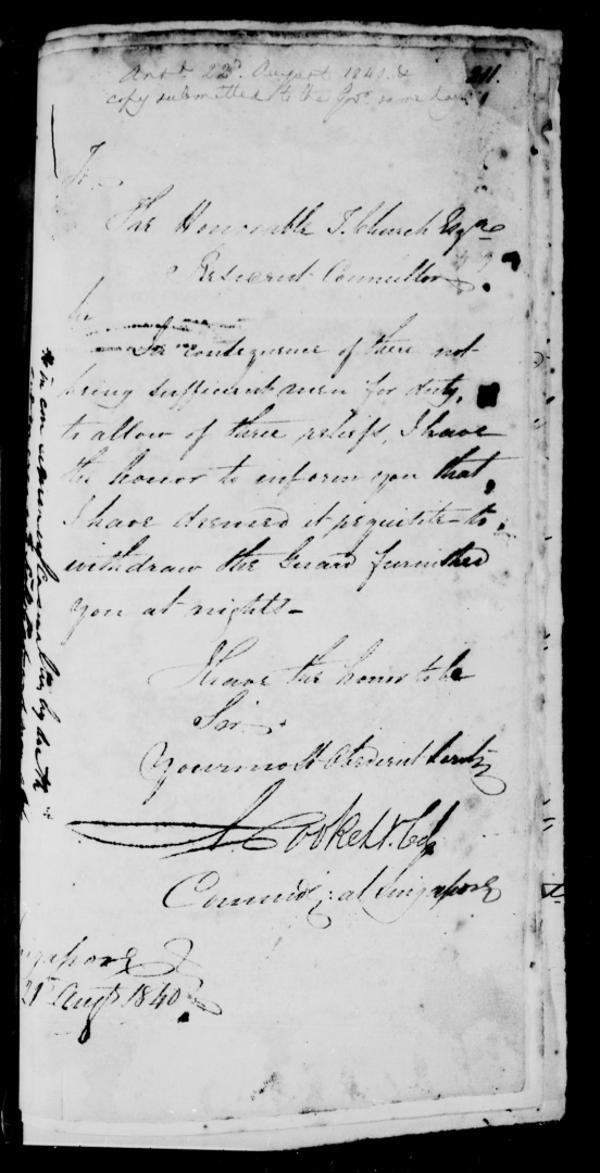 Ansd. 22nd. August 1840. &
copy submitted to the Govr. same day
211.
To
The Honorable T. Church Esqre
Resident Councillor
Sir
In consequence of there not
being sufficient men for duty,
to allow of three reliefs, I have
the honor to inform you that,
I have deemed it requisite to
withdraw the Guard furnished
you at nights—
I have the honor to be
Sir
Your most Obedient Servt.
Commdg: at Singapore
ngapore
21st Augt 1840